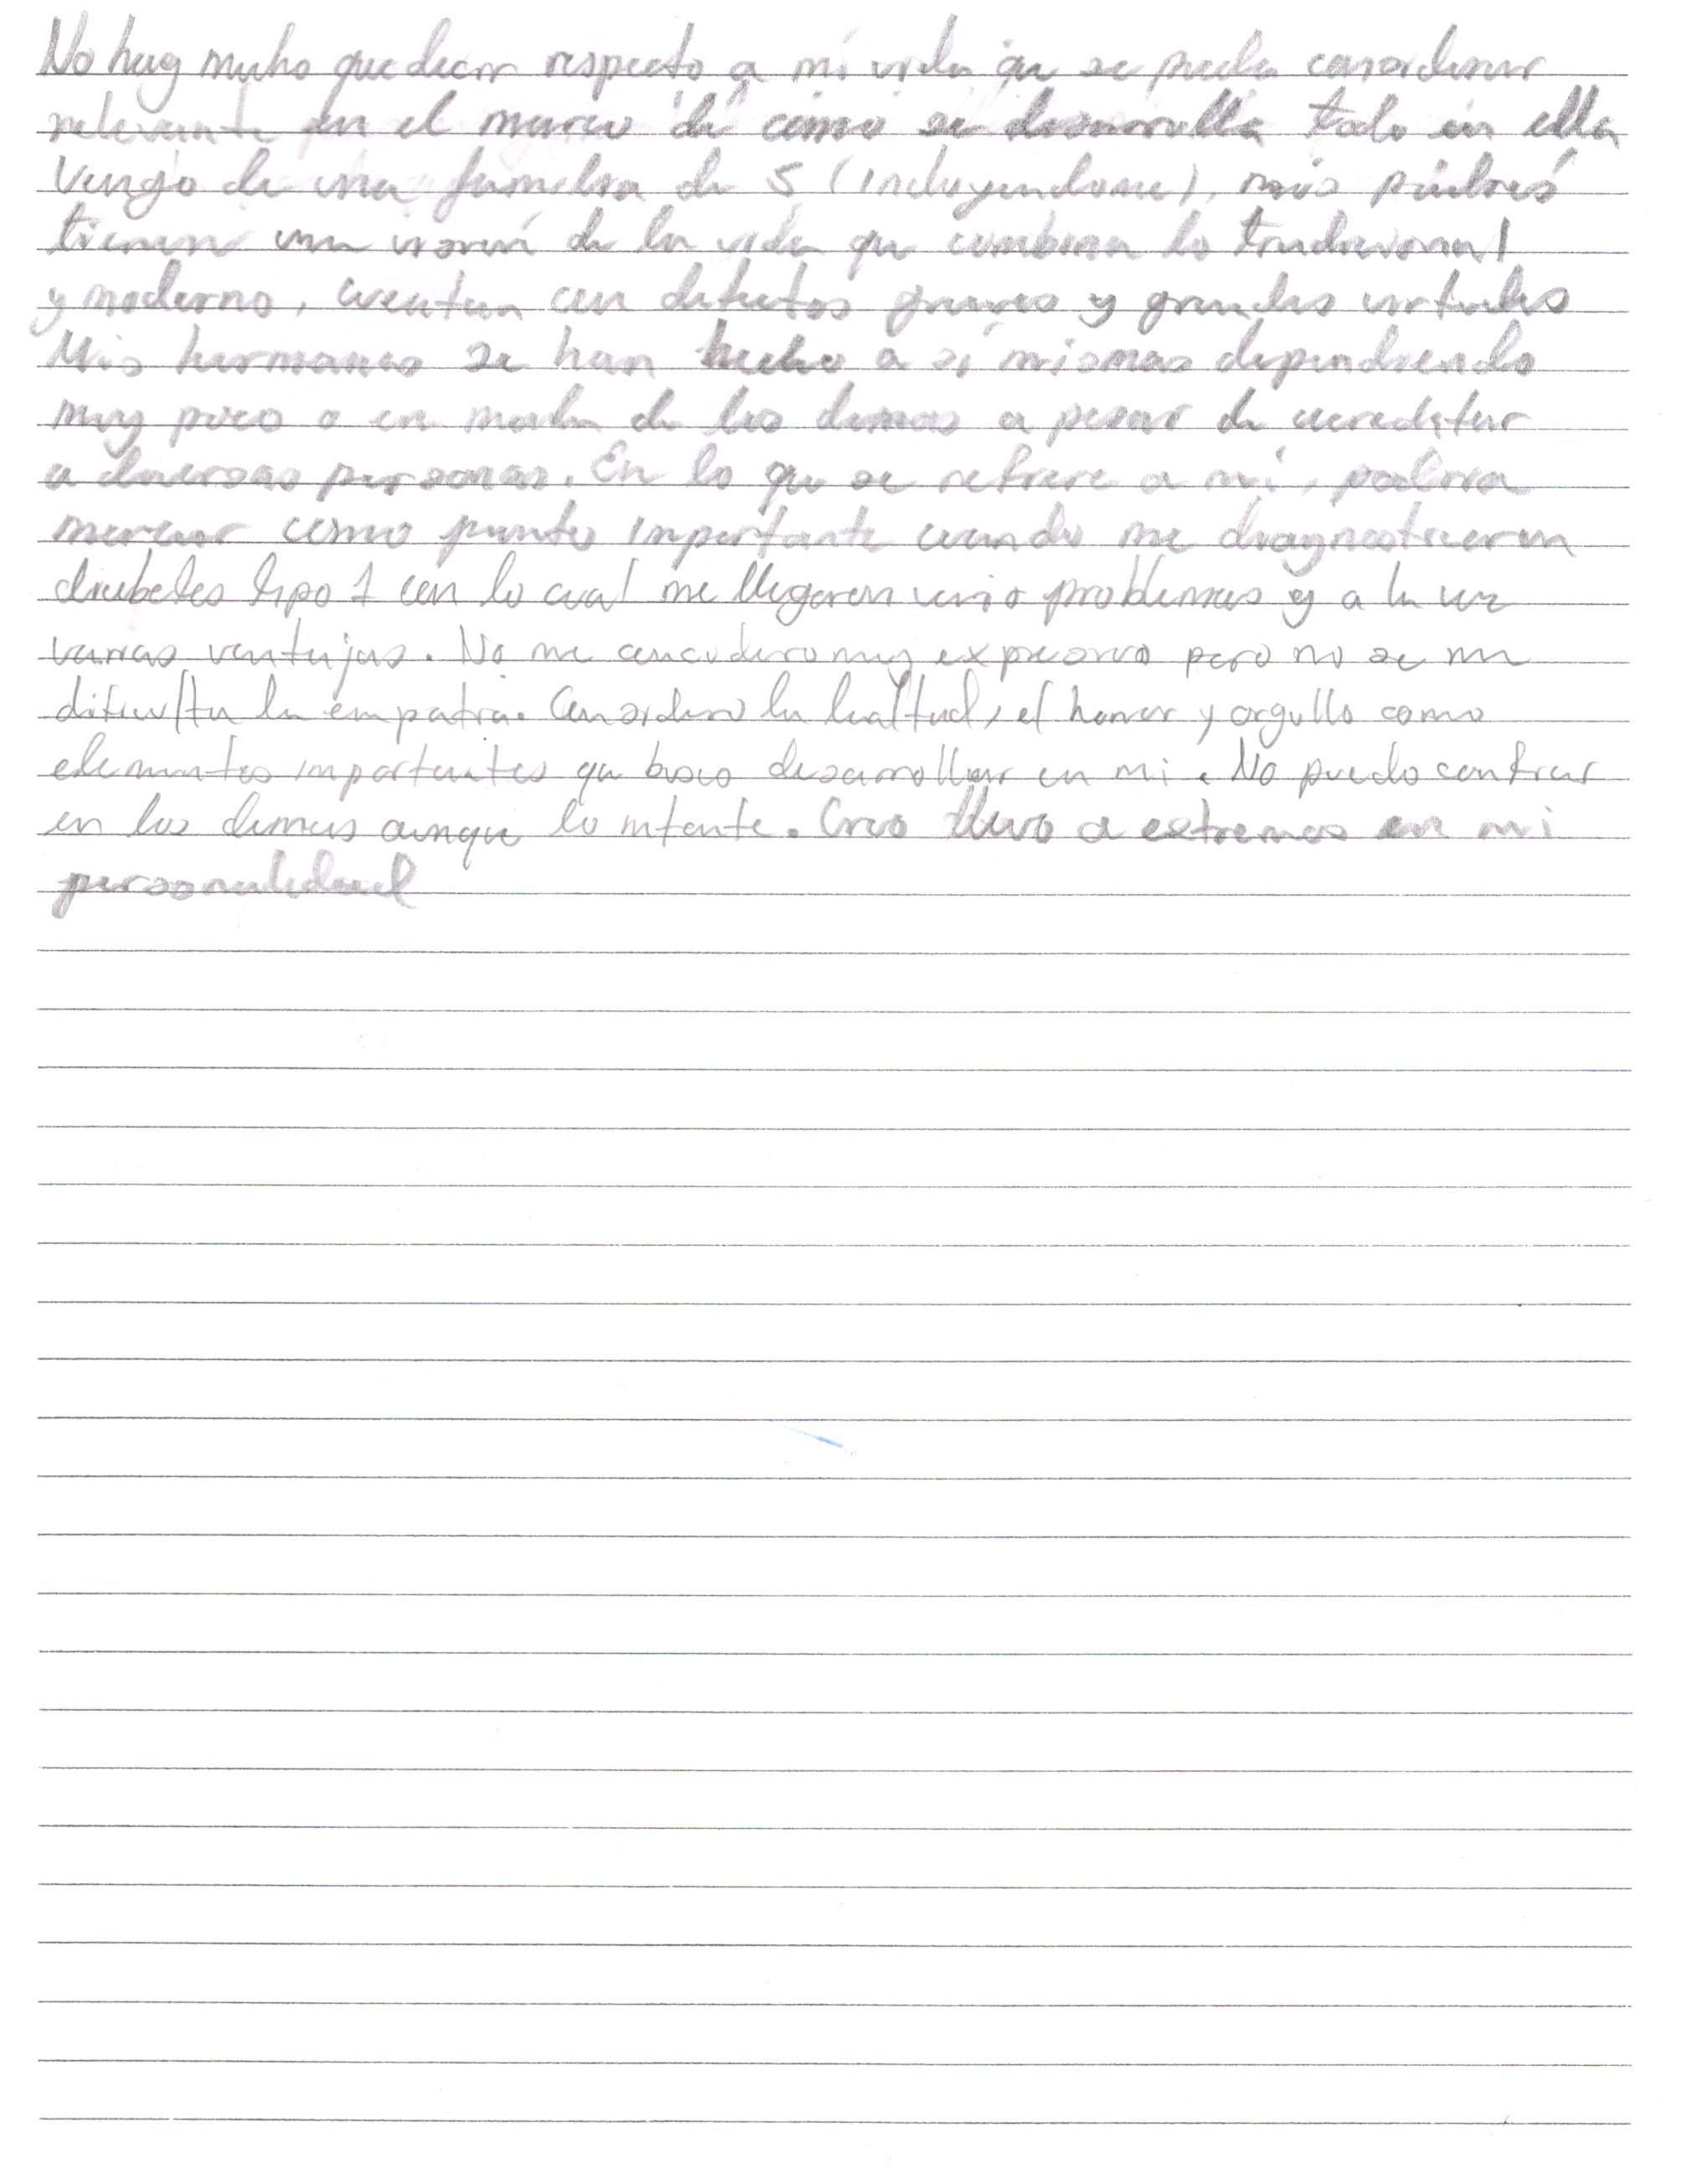 No hay mucho que decir respecto a mi vida que se pueda considerar
relevante en el marco de cómo se desarrolla todo en ella
Vengo de una familia de 5 (incluyendome), mis padres
tienen una visión de la vida que combina lo tradicional
y moderno, cuentan con defectos graves y grandes virtudes
Mis hermanas se han hecho a sí mismas dependiendo
muy poco o en nada de los demas a pesar de acreditar
a diversas personas. En lo que se refiere a mí, podria
como punto importante cuando me diagnosticaron
diabetes tipo 1 con lo cual me llegaron vario problemas y a la vez
varias ventajas. No me muy expresivo pero no se me
dificulta la empatia. Considero la lealtud, el honor y orgullo como
elementos importantes que busco desarrollar en mi. No puedo confiar
en los demas aunque lo intente. Creo llevo a extremos en mi
personalidad